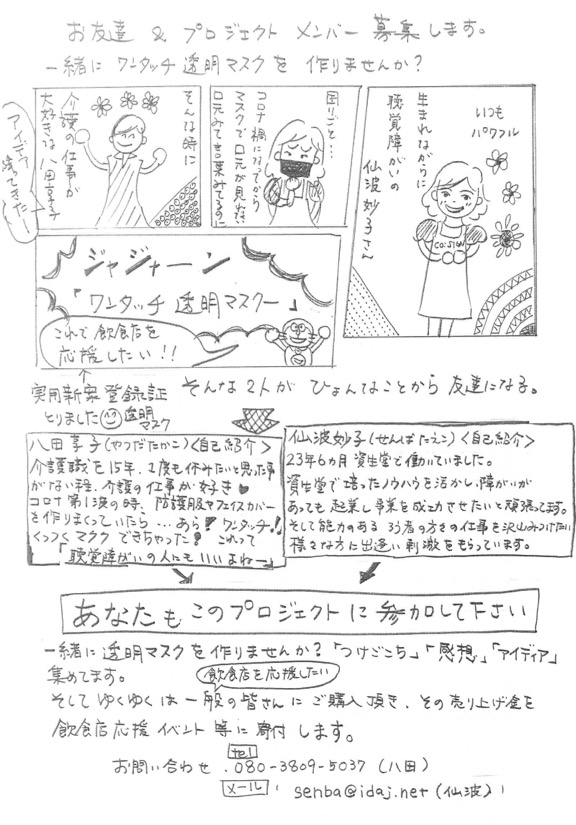 お友達 & プロジェクト メンバー 募集します。
一緒に ワンタッチ 透明マスクを 作りませんか?
いつも
パワフル
生まれながらに
聴覚障がいの
仙波 妙子さん
CO:SIGN
困りごと…
コロナ禍になってから
マスクで口元が見れない
口元みて言葉みてるのに
そんな時に
介護の仕事が
大好きな八田享子
アイデア
湧いてきたー
ジャジャーン
「ワンタッチ 透明マスクー」
これで飲食店を
応援したい!!
実用新案登録証
とりました 透明
マスク
そんな2人が ひょんなことから 友達になる。
八田享子(やつだたかこ)<自己紹介>
介護職を15年、1度も休みたいと思った事
がない程、介護の仕事が好き♥
コロナ第1波の時、防護服やフェイスカバー
を作りまくっていたら…あら!ワンタッチ!
くっつくマスクできちゃった? これって
「聴覚障がいの人にもいいよねー」
仙波妙子(せんばたえこ)<自己紹介>
23年6ヵ月 資生堂で働いていました。
資生堂で培ったノウハウを活かし、障がいが
あっても起業し事業を成功させたいと頑張ってます。
そして能力のある ろう者の方々の仕事を沢山みつけたい
様々な方に出逢い刺激をもらっています。
あなたも このプロジェクトに 参加して下さい
一緒に 透明マスクを作りませんか?「つけごこち」「感想」「アイディア」
集めてます。
飲食店を応援したい
そして ゆくゆくは 一般の皆さんに ご購入頂き、その売り上げ金を
飲食店応援 イベント 等に 寄付 します。
tel
お問い合わせ ・080-3809-5037 (八田)
メール ・ senba@idaj.net (仙波)